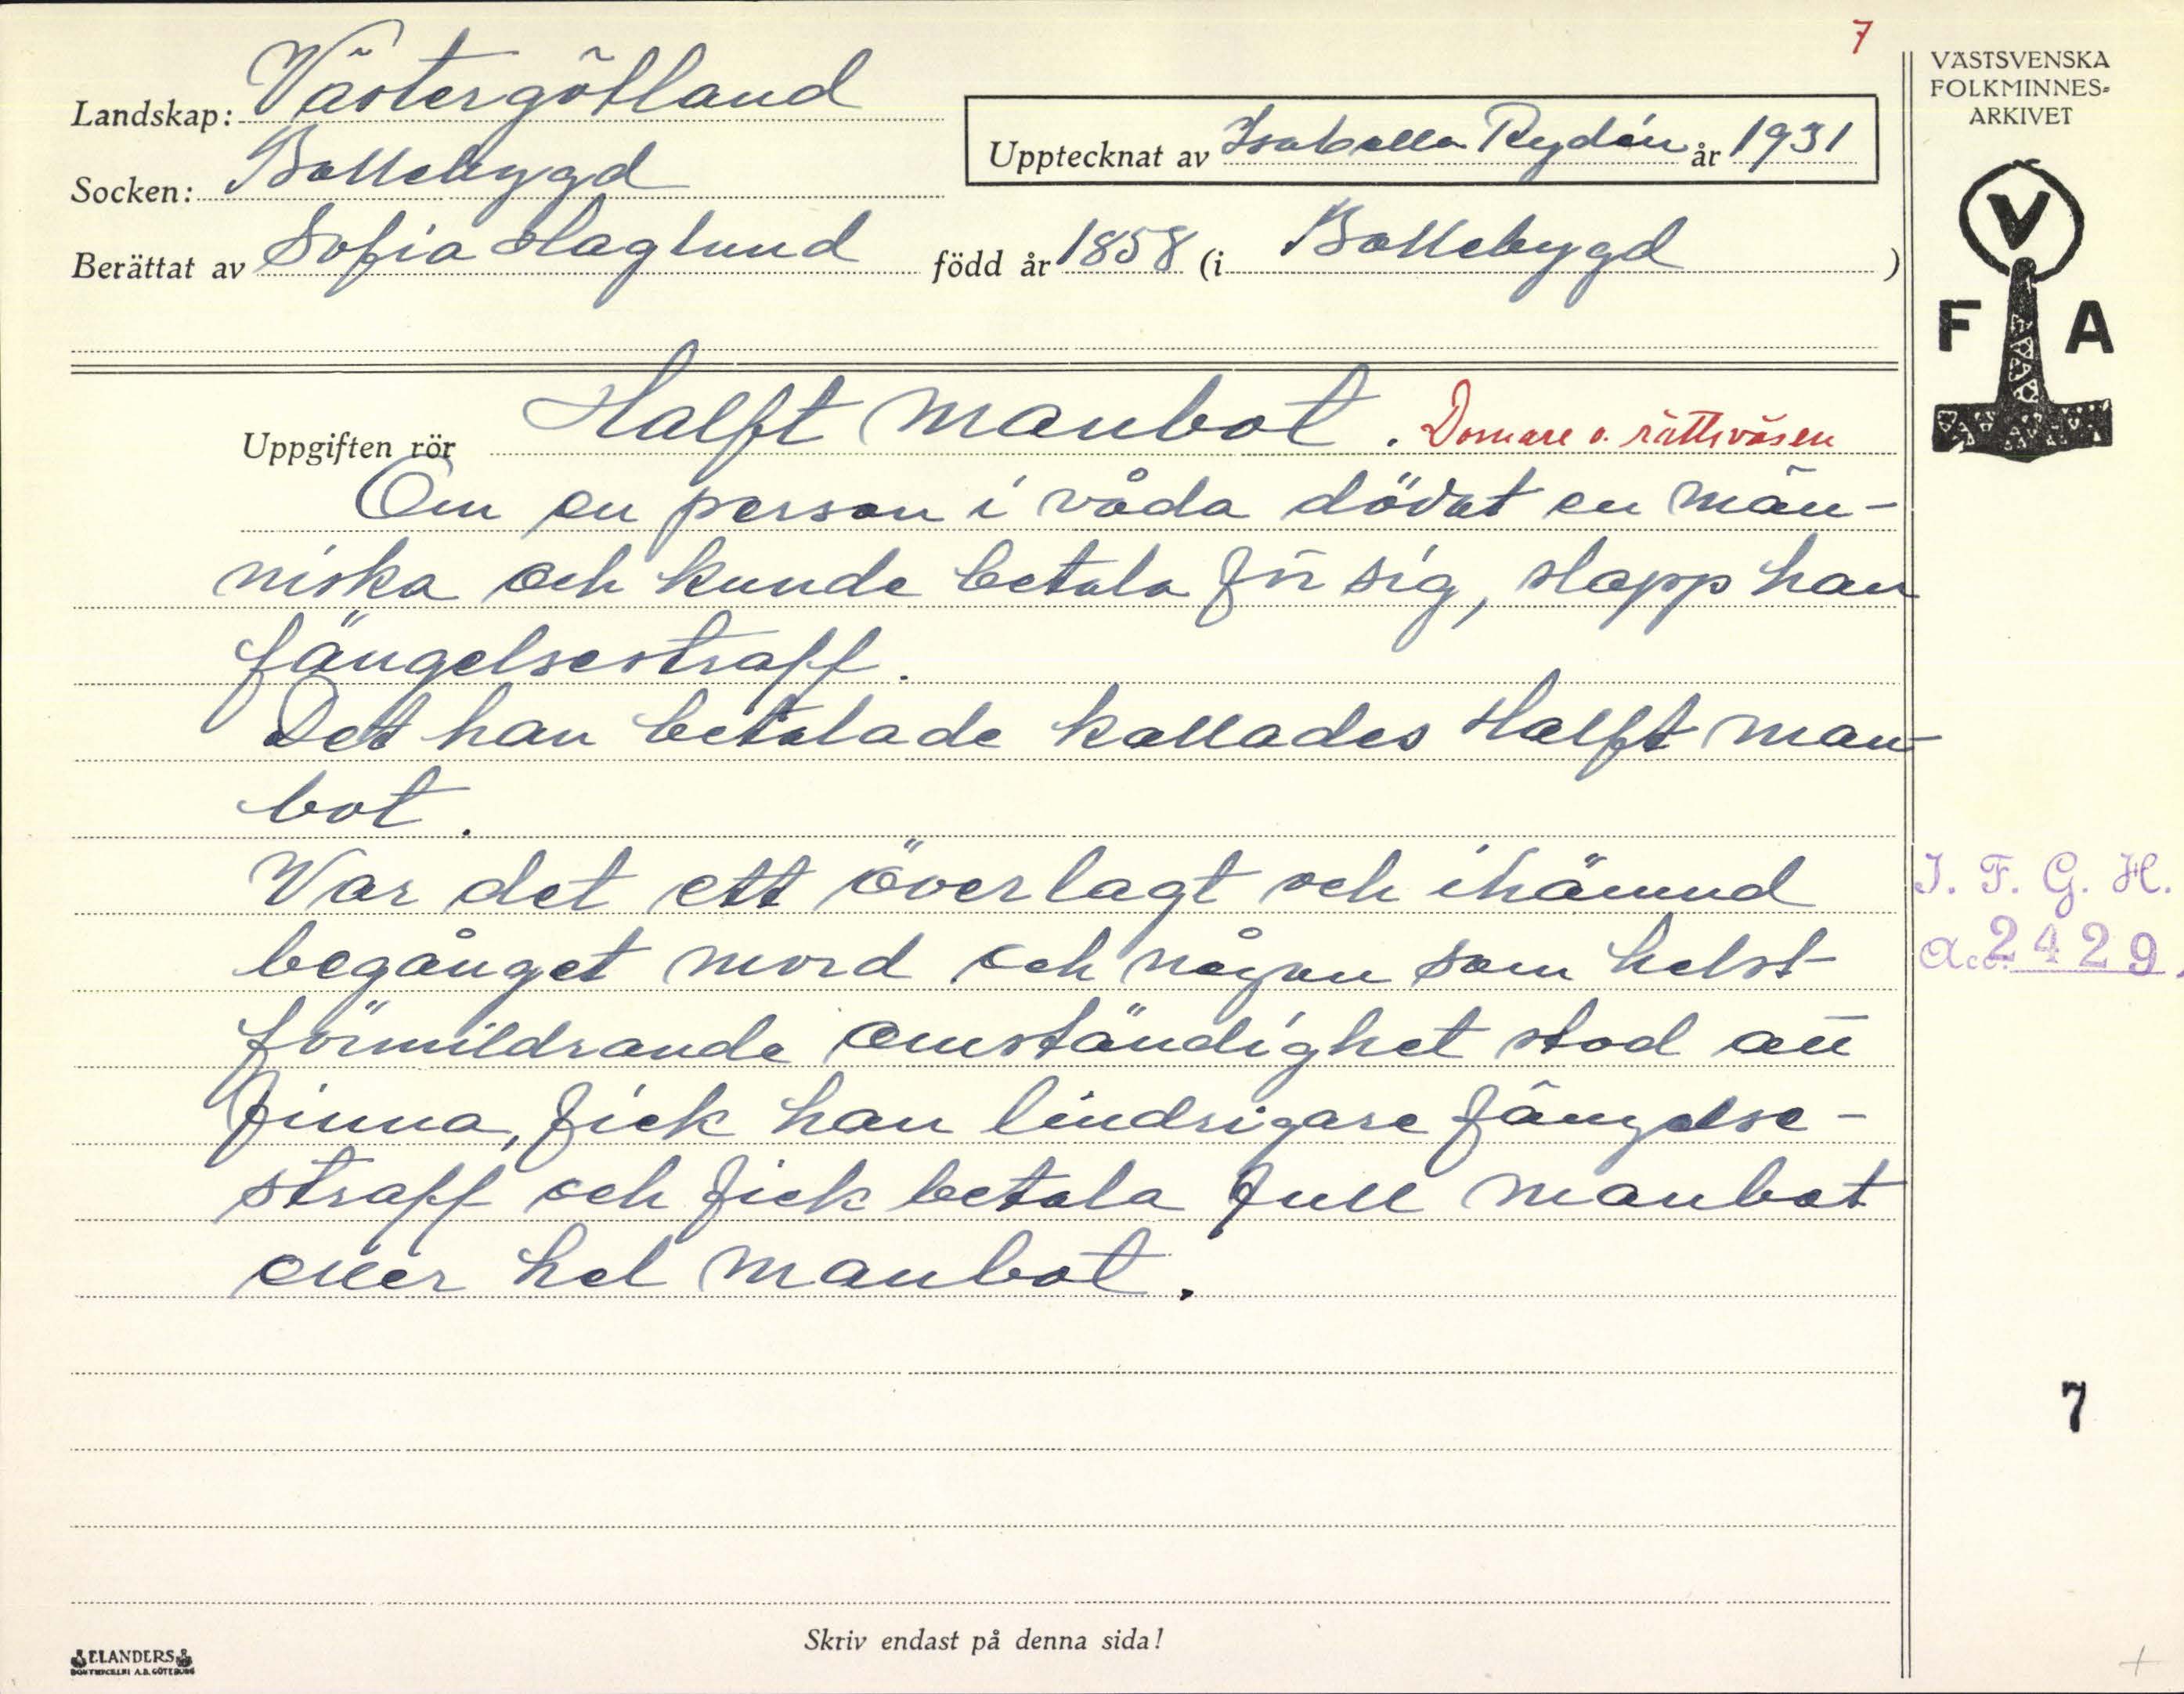 7
VÄSTSVENSKA
FOLKMINNES-
ARKIVET
Landskap: Västergötland
Upptecknat av Isabella Rydén år 1931
Socken: Bollebygd
Berättat av Sofia Haglund född år 1858 (i Bollebygd )
V
F A
Uppgiften rör Halft manbot. Domare o. rättsväsen
Om en person i våda dödat en män-
niska och kunde betala för sig, slapp han
fängelsestraff.
Det han betalade kallades Halft man-
bot.
Var det ett överlagt och ihämnd
begånget mord och någon som helst
förmildrande omständighet stod att
finna, fick han lindrigare fängelse-
straff och fick betala full manbot
eller hel manbot.
I. F. G. H.
Acc. 2429.
7
Skriv endast på denna sida!
ELANDERS
BOKTRYCKERI A.B. GÖTEBORG
+